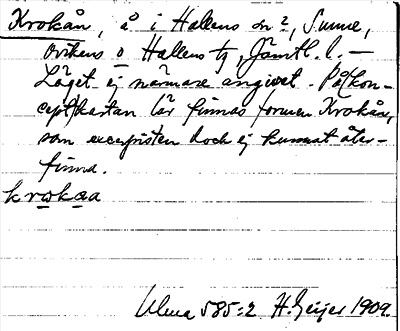 Krokån, å i Hallens sn?, Sunne,
Ovikens o Hallens tg, Jämtl. l. —
Läget ej närmare angivet. På kon-
ceptkartan lär finnas formen Krokån,
som excerpisten dock ej kunnat åter-
finna.
krokaa
Ulma 585:2 H. Geijer 1909.